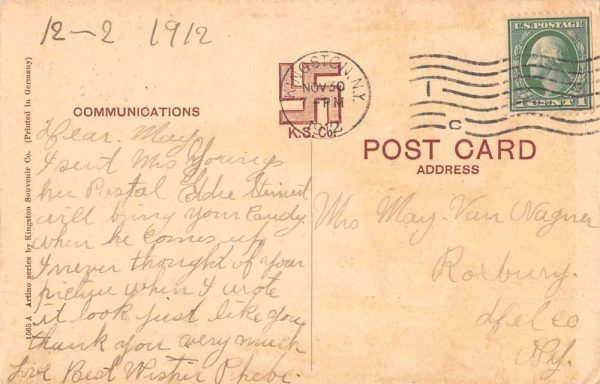 12-2 1912
KINGSTON, N.Y.
NOV 30
-PM
1912
1
C
U.S. POSTAGE
1 CENT 1
K.S.Co.
COMMUNICATIONS
POST CARD
ADDRESS
1565 A Artino series by Kingston Souvenir Co. (Printed in Germany)
Dear May
I sent Mrs Youngs
her Postal Eddie
will bring your Candy
when he comes up
I never thought of your
picture when I wrote
it look just like you
thank you very much
Love Best Wisher Phebe.
Mrs May Van Wagner
Roxbury.
Del co
N.Y.